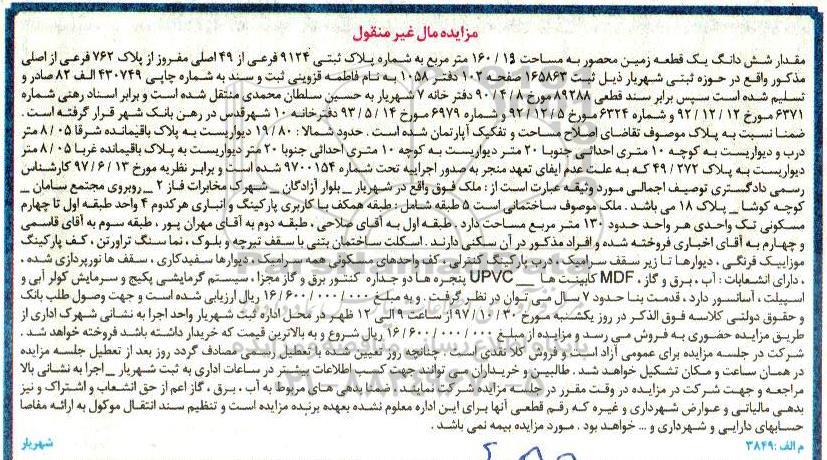 مزایده مال غیر منقول
مقدار شش دانگ یک قطعه زمین محصور به مساحت ۱۶۰/۱۵ متر مربع به شماره پلاک ثبتی ۹۱۲۴ فرعی از ۴۹ اصلی مفروز از پلاک ۷۶۲ فرعی از اصلی
مذکور واقع در حوزه ثبتی شهریار ذیل ثبت ۱۶۵۸۶۳ صفحه ۱۰۲ دفتر ۱۰۵۸ به نام فاطمه قزوینی ثبت و سند به شماره چاپی ۴۳۰۷۴۹ الف ۸۲ صادر و
تسلیم شده است سپس برابر سند قطعی ۸۹۲۸۸ مورخ ۹۰/۴/۸ دفتر خانه ۷ شهریار به حسین سلطان محمدی منتقل شده است و برابر اسناد رهنی شماره
۶۳۷۱ مورخ ۹۲/۱۲/۱۲ و شماره ۶۳۲۴ مورخ ۹۲/۱۲/۵ و شماره ۶۹۷۹ مورخ ۹۳/۵/۱۴ دفترخانه ۱۰ شهرقدس در رهن بانک شهر قرار گرفته است .
ضمنا نسبت به پلاک موصوف تقاضای اصلاح مساحت و تفکیک آپارتمان شده است . حدود شمالا : ۱۹/۸۰ دیواریست به پلاک باقیمانده شرقا ۸/۰۵ متر
درب و دیواریست به کوچه ۱۰ متری احداثی جنوبا ۲۰ متر دیواریست به کوچه ۱۰ متری احداثی جنوبا ۲۰ متر دیواریست به پلاک باقیمانده غربا ۸/۰۵ متر
دیواریست به پلاک ۴۹/۲۷۲ که به علت عدم ایفای تعهد منجر به صدور اجراییه تحت شماره ۹۷۰۰۱۵۴ شده است و برابر نظریه مورخ ۹۷/۶/۱۳ کارشناس
رسمی دادگستری توصیف اجمالی مورد وثیقه عبارت است از : ملک فوق واقع در شهریار _ بلوار آزادگان _ شهرک مخابرات فاز ۲ _ روبروی مجتمع سامان _
کوچه کوشا _ پلاک ۱۸ می باشد . ملک موصوف ساختمانی است ۵ طبقه شامل : طبقه همکف با کاربری پارکینگ و انباری هرکدوم ۴ واحد طبقه اول تا چهارم
مسکونی تک واحدی هر واحد حدود ۱۳۰ متر مربع مساحت دارد . طبقه اول به آقای صلاحی ، طبقه دوم به آقای مهران پور ، طبقه سوم به آقای قاسمی
و چهارم به آقای اخباری فروخته شده و افراد مذکور در آن سکنی دارند . اسکلت ساختمان بتنی با سقف تیرچه و بلوک ، نما سنگ تراورتن ، کف پارکینگ
موزاییک فرنگی ، دیوارها تا زیر سقف سرامیک ، درب پارکینگ کنترلی . کف واحدهای مسکونی همه سرامیک ، دیوارها سفیدکاری ، سقف ها نورپردازی شده
، دارای انشعابات : آب ، برق و گاز ، MDF کابینت ها _ UPVC پنجره ها دو جداره کنتور برق و گاز مجزا ، سیستم گرمایشی پکیج و سرمایش کولر آبی و
اسپیلت ، آسانسور دارد ، قدمت بنا حدود ۷ سال می توان در نظر گرفت . و به مبلغ ۱۶/۶۰۰/۰۰۰/۰۰۰ ریال ارزیابی شده است و جهت وصول طلب بانک
و حقوق دولتی کلاسه فوق الذکر در روز یکشنبه مورخ ۹۷/۱۰/۳۰ از ساعت ۹ الی ۱۲ ظهر در محل اداره ثبت شهریار واحد اجرا به نشانی شهرک اداری از
طریق مزایده حضوری به فروش می رسد و مزایده از مبلغ ۱۶/۶۰۰/۰۰۰/۰۰۰ ریال شروع و به بالاترین قیمت که خریدار داشته باشد فروخته خواهد شد .
شرکت در جلسه مزایده برای عمومی آزاد است و فروش کلا نقدی است . چنانچه روز تعیین شده با تعطیل رسمی مصادف گردد روز بعد از تعطیل جلسه مزایده
در همان ساعت و مکان تشکیل خواهد شد . طالبین و خریداران می توانند جهت کسب اطلاعات بیشتر در ساعات اداری به ثبت شهریار _ اجرا به نشانی بالا
مراجعه و جهت شرکت در مزایده در وقت مقرر در جلسه مزایده شرکت نمایند . ضمنا بدهی های مربوط به آب ، برق ، گاز اعم از حق انشعاب و اشتراک و نیز
بدهی مالیاتی و عوارض شهرداری و غیره که رقم قطعی آنها برای این اداره معلوم نشده بعهده برنده مزایده است و تنظیم سند انتقال موکول به ارائه مفاصا
حسابهای دارایی و شهرداری و ... خواهد بود . مورد مزایده بیمه نمی باشد .
م الف : ۳۸۴۹ شهریار